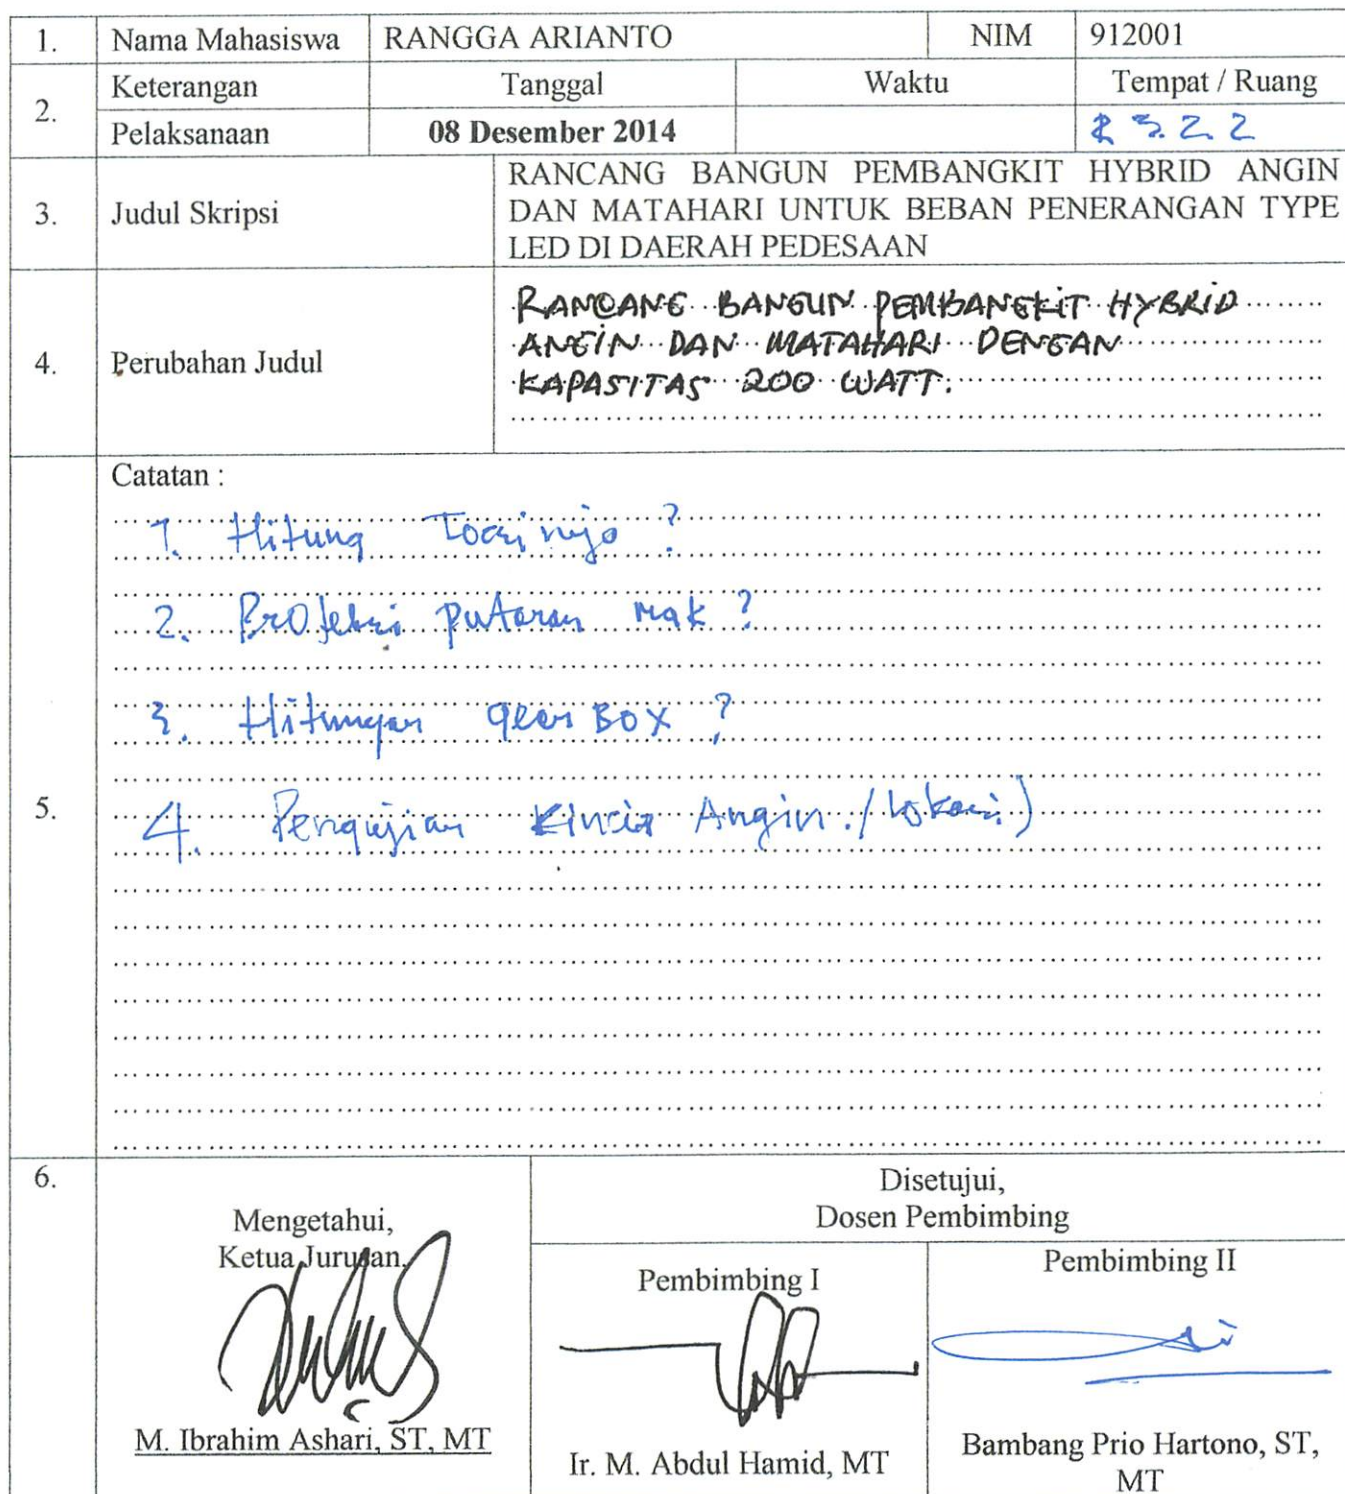 1. Nama Mahasiswa RANGGA ARIANTO NIM 912001
2. Keterangan Tanggal Waktu Tempat / Ruang
Pelaksanaan 08 Desember 2014 3.2.2
3. Judul Skripsi RANCANG BANGUN PEMBANGKIT HYBRID ANGIN
DAN MATAHARI UNTUK BEBAN PENERANGAN TYPE
LED DI DAERAH PEDESAAN
4. Perubahan Judul RANCANG BANGUN PEMBANGKIT HYBRID
ANGIN DAN MATAHARI DENGAN
KAPASITAS 200 WATT.
5. Catatan :
1. Hitung ?
2. Proteksi putaran mak ?
3. Hitungan gear BOX ?
4. Pengujian Kincir Angin. (lokasi)
6. Mengetahui,
Ketua Jurusan,
M. Ibrahim Ashari, ST, MT
Disetujui,
Dosen Pembimbing
Pembimbing I
Ir. M. Abdul Hamid, MT
Pembimbing II
Bambang Prio Hartono, ST,
MT